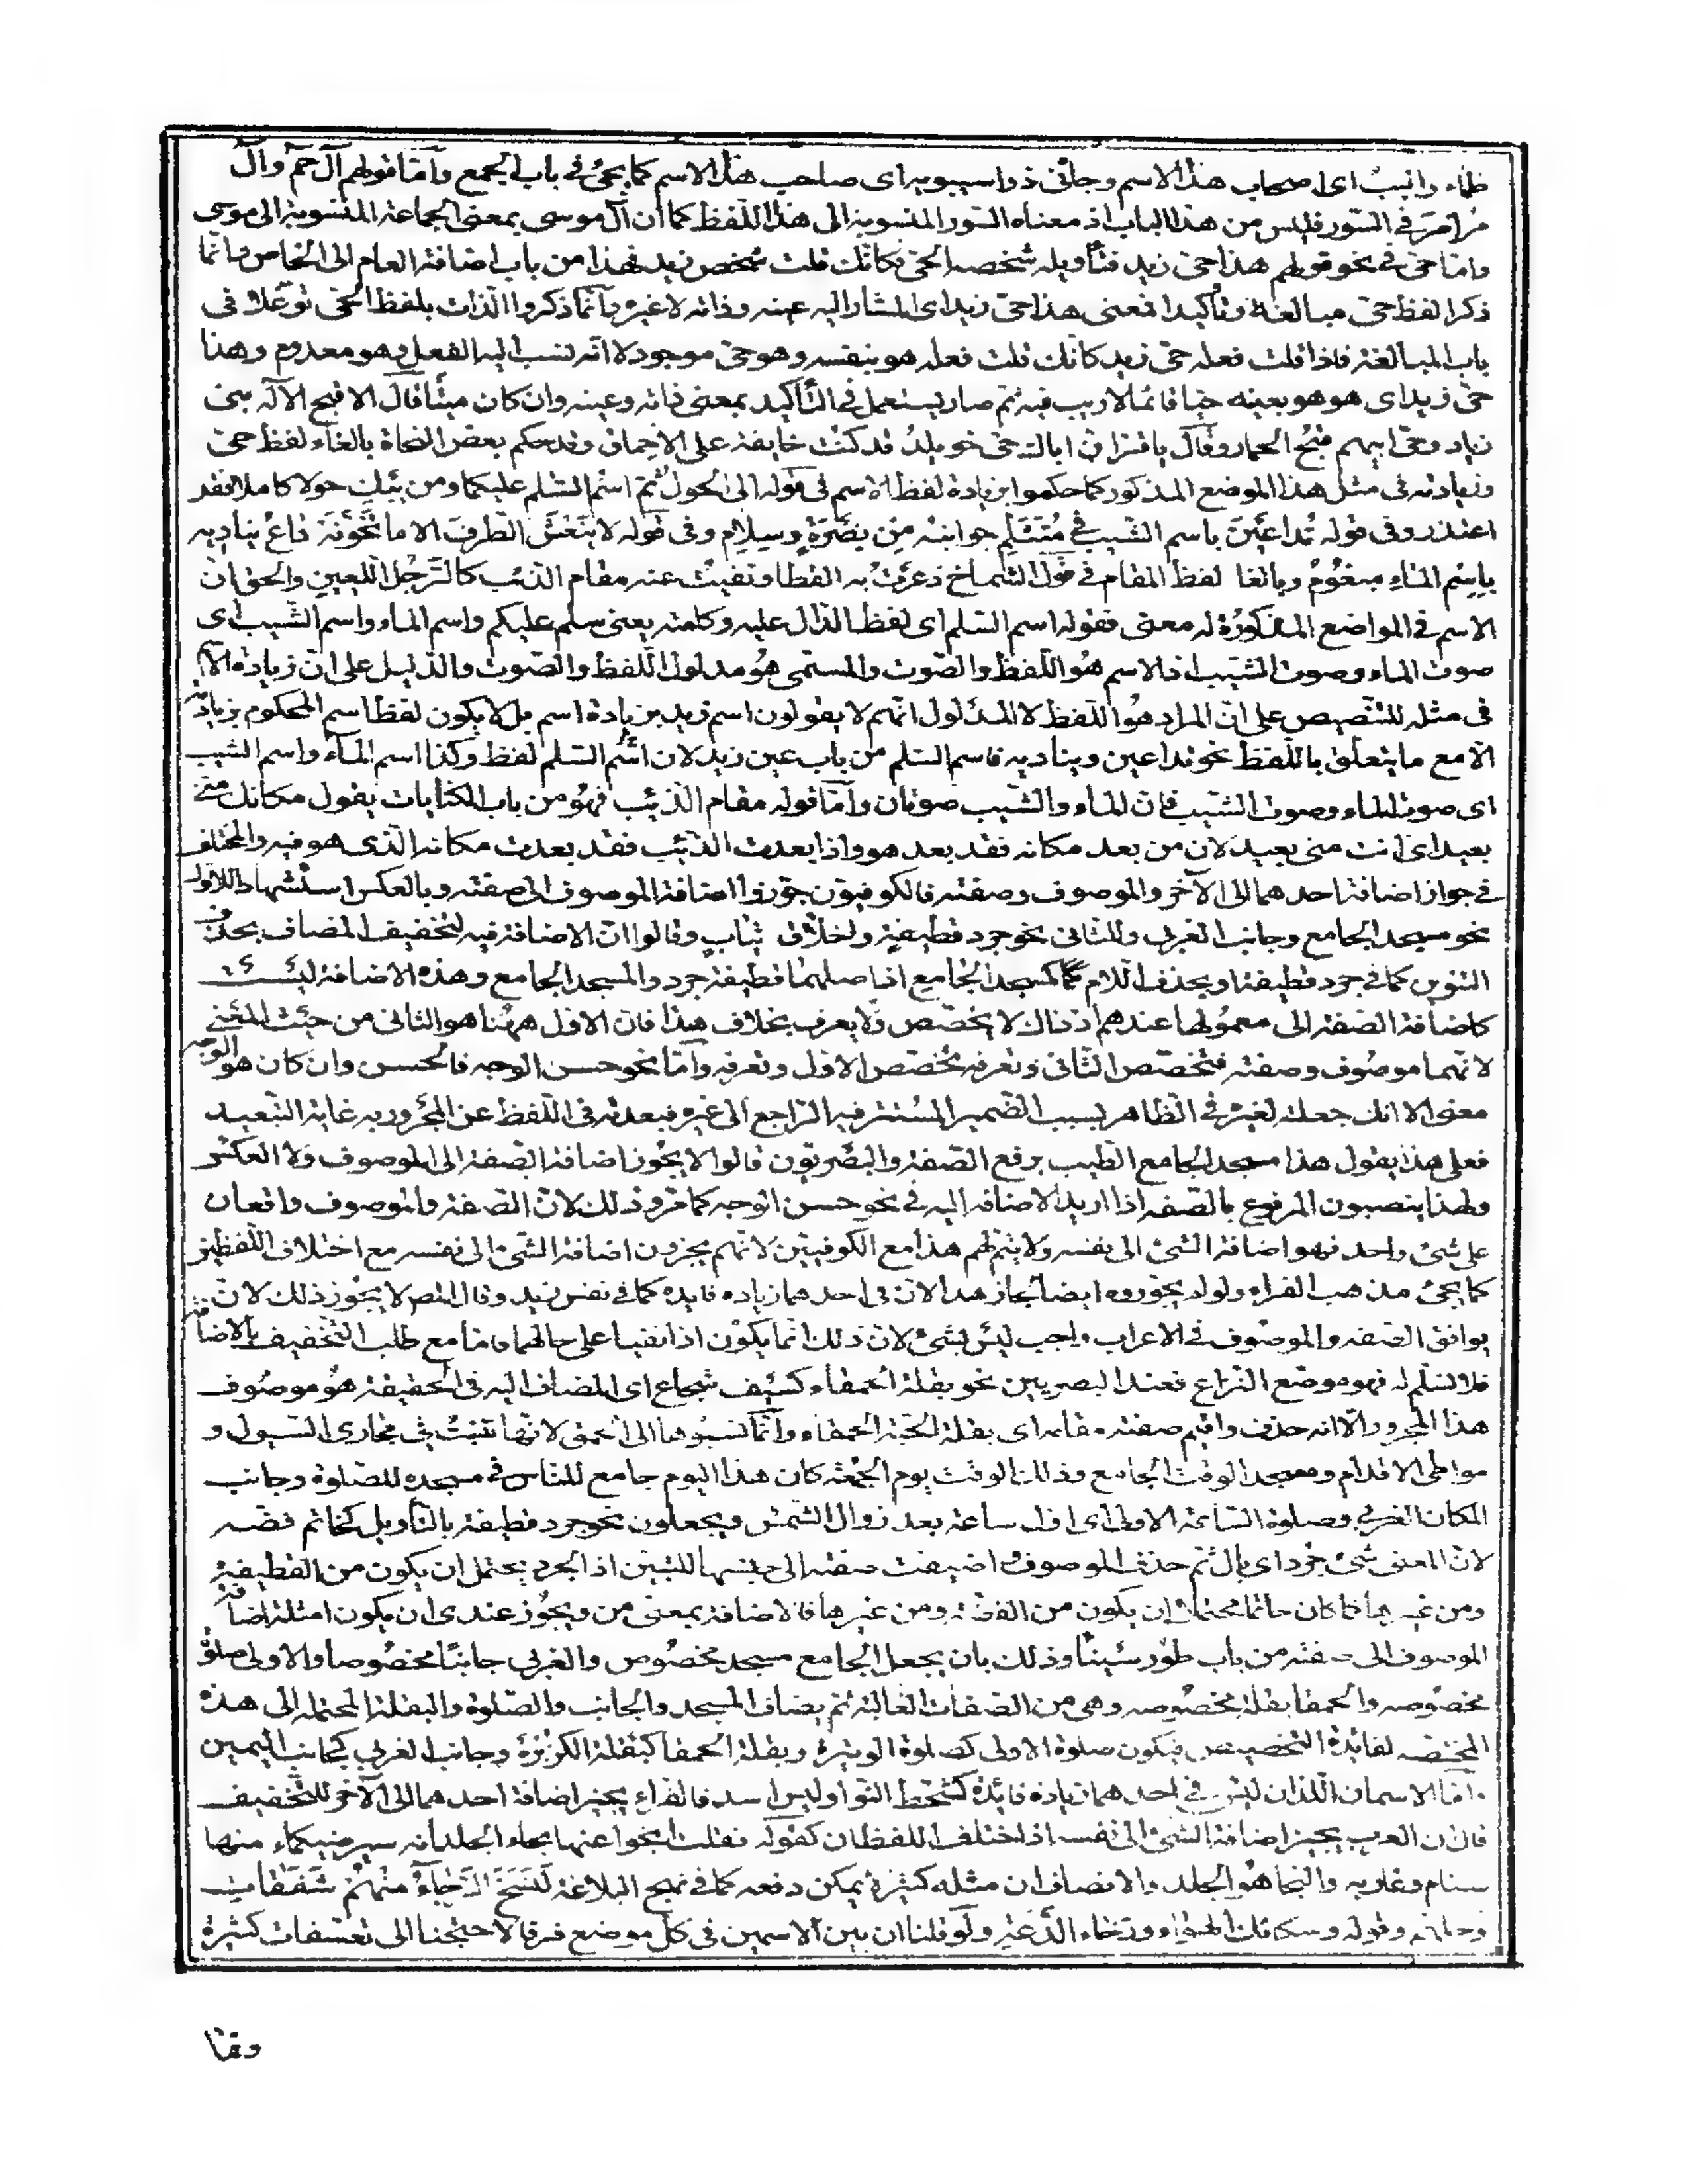 ظماء والبب اى اصحاب هذا الاسم وجاءنى ذوا سيبويه اى صاحب هذا الاسم كما يجئ فى باب الجمع وامّا قولهم آل حم وآل
مرامر فى السّور فليس من هذا الباب اذ معناه السّور المنسوبة الى هذا اللّفظ كما ان آل موسى بمعنى الجماعة المنسوبة الى موسى
وامّا حىّ فى نحو قولهم هذا حىّ زيد فتأويله شخصه الحىّ فكانّك قلت شخص زيد فهذا من باب اضافة العام الى الخاص وانّما
ذكر لفظ حىّ مبالغة وتأكيدا فمعنى هذا حىّ زيد اى المشار اليه عينه وذاته لا غيره وانّما ذكروا الذات بلفظ الحىّ توغّلا فى
باب المبالغة فاذا قلت فعله حىّ زيد كانّك قلت فعله هو بنفسه وهو حىّ موجود لا انّه نسب اليه الفعل وهو معدوم وهذا
حىّ زيد اى هو هو بعينه حيّا قائما لا ريب فيه ثم صار يستعمل فى التّأكيد بمعنى ذاته وعينه وان كان ميّتا قال الا قبح الاله بنى
زياد وحىّ ابيهم قبح الحمار وقال يا قرّ انّ اباك حىّ خويلد قد كنت خايفه على الاحماق وقد حكم بعض النحاة بالغاء لفظ حىّ
وزيادته فى مثل هذا الموضع المذكور كما حكموا بزيادة لفظ اسم فى قوله الى الحول ثم اسم السّلم عليكما ومن يبك حولا كاملا فقد
اعتذر وفى قوله تداعين باسم الشيب فى متثلّم جوانبه من بصرة وسلام وفى قوله لا ينعش الطرف الا ما تخوّنه داع يناديه
باسم الماء مبغوم وبالغاء لفظ المقام فى قول الشماخ ذعرت به القطا ونفيت عنه مقام الذئب كالرّجل اللّعين والحق ان
الاسم فى المواضع المذكورة له معنى فقوله اسم السّلم اى لفظ الدّال عليه وكلمته يعنى سلم عليكم واسم الماء واسم الشّيب اى
صوت الماء وصوت الشيب اذ الاسم هو اللّفظ والصّوت والمسمّى هو مدلول اللّفظ والصّوت والدّليل على ان زيادة الاسم
فى مثله للتّنصيص على انّ المراد هو اللّفظ لا المدلول انّهم لا يقولون اسم زيد بزيادة اسم بل لا يكون لفظ اسم المحكوم بزيادته
الّا مع ما يتعلّق باللّفظ نحو تداعين ويناديه فاسم السّلم من باب عين زيد لان اسم السّلم لفظ وكذا اسم الماء واسم الشيب
اى صوت الماء وصوت الشيب فانّ للماء والشّيب صوتان وامّا قوله مقام الذّئب فهو من باب الكنايات يقول مكانك منّى
بعيد اى انت منى بعيد لان من بعد مكانه فقد بعد هو واذا بعدت الذّئب فقد بعدت مكانه الّذى هو فيه والمختلف
فى جواز اضافة احدهما الى الآخر والموصوف وصفته فالكوفيون جوّزوا اضافة الموصوف الى صفته وبالعكس استشهادا للاوّل
نحو مسجد الجامع وجانب الغربى وللثانى نحو جرد قطيفة واخلاق ثياب وقالوا انّ الاضافة فيه لتخفيف المضاف بحذف
التنوين كما فى جرد قطيفة او بحذف اللّام كما كمسجد الجامع اذ اصلهما قطيفة جرد والمسجد الجامع وهذه الاضافة ليست
كاضافة الصّفة الى معمولها عندهم اذ ذاك لا يخصّص ولا يعرف بخلاف هذا فان الاوّل ههنا هو الثانى من حيث المعنى
لانّهما موصوف وصفته فتخصّص الثّانى وتعرفه مخصّص الاوّل وتعرفه وامّا نحو حسن الوجه فالحسن وان كان هو الوجه
معنى الا انّك جعلته لغيره فى الظّاهر بسبب الضّمير المستتر فيه الرّاجع الى غيره فبعدته فى اللّفظ عن المجرور به غاية التّبعيد
فعلى هذا يقول هذا مسجد الجامع الطّيب برفع الصّفة والبصريون قالوا لا يجوز اضافة الصّفة الى الموصوف ولا العكس
ولهذا ينصبون المرفوع بالصّفه اذا اريد الاضافه اليه فى نحو حسن الوجه كما مرّ وذلك لانّ الصّفة والموصوف واقعان
على شئ واحد فهو اضافة الشئ الى نفسه ولا يتمّ لهم هذا مع الكوفيّين لانّهم يجيزون اضافة الشّئ الى نفسه مع اختلاف اللّفظين
كما يجئ من مذهب الفراء ولو لم يجوّزوه ايضا لجاز هذا لان فى احدهما زياده فايده كما فى نفس زيد وقال المص لا يجوز ذلك لان
توافق الصّفه والموصوف فى الاعراب واجب ليس بشئ لانّ ذلك انّما يكون اذا بقيا على حالهما وامّا مع طلب التّخفيف بالاضافة
فلا نسلّم له فهو موضع النّزاع فعند البصريين نحو بقلة الحمقاء كسيف شجاع اى المضاف اليه فى الحقيقة هو موصوف
هذا المجرور الّا انه حذف واقيم صفته مقامه اى بقلة الحبّة الحمقاء وانّما نسبوها الى الحمق لانّها تنبت فى مجارى السّيول و
مواطى الاقدام ومسجد الوقت الجامع وذلك الوقت يوم الجمعة كان هذا اليوم جامع للنّاس فى مسجده للصّلوة وجانب
المكان الغربى وصلوة السّاعة الاولى اى اول ساعة بعد زوال الشّمس ويجعلون نحو جرد قطيفة بالتّأويل كخاتم فضه
لانّ المعنى شئ جرد اى بال ثم حذف الموصوف اضيفت صفته الى جنسها للتبيّن اذ الجرد يحتمل ان يكون من القطيفة
ومن غيرها كما كان خاتما محتملا ان يكون من الفضّة ومن غيرها فالاضافة بمعنى من ويجوز عندى ان يكون امثلة اضافة
الموصوف الى صفته من باب طور سينا وذلك بان يجعل الجامع مسجد مخصوص والغربى جانبا مخصوصا والاولى صلوة
مخصوصه والحمقا بقلة مخصوصه وهى من الصّفات الغالبة ثم يضاف المسجد والجانب والصّلوة والبقلة المحتمله الى هذه
المختصه لفائدة التّخصيص فيكون صلوة الاولى كصلوة الوتيرة وبقلة الحمقا كبقلة الكزبرة وجانب الغربى كجانب اليمين
وامّا الاسمان اللّذان ليس فى احدهما زيادة فائدة كشحط النّوا وليس اسد فالفراء يجيز اضافة احدهما الى الآخر للتّخفيف
قال ان العرب يجيز اضافة الشئ الى نفسه اذا اختلف اللفظان كقوله فقلت انجوا عنها نجاء الجلد انه سيرضيكماء منها
سنام وغاربه والنجا هو الجلد والانصاف ان مثله كثيرة يمكن دفعه كما فى نهج البلاغة لنسخ الرّجاء منهم شفقات
وجلهم وقوله وسكائك الهواء ورخاء الدّعة ولو قلنا ان بين الاسمين فى كل موضع فرقا لاحتجنا الى تعسّفات كثيرة
وقا